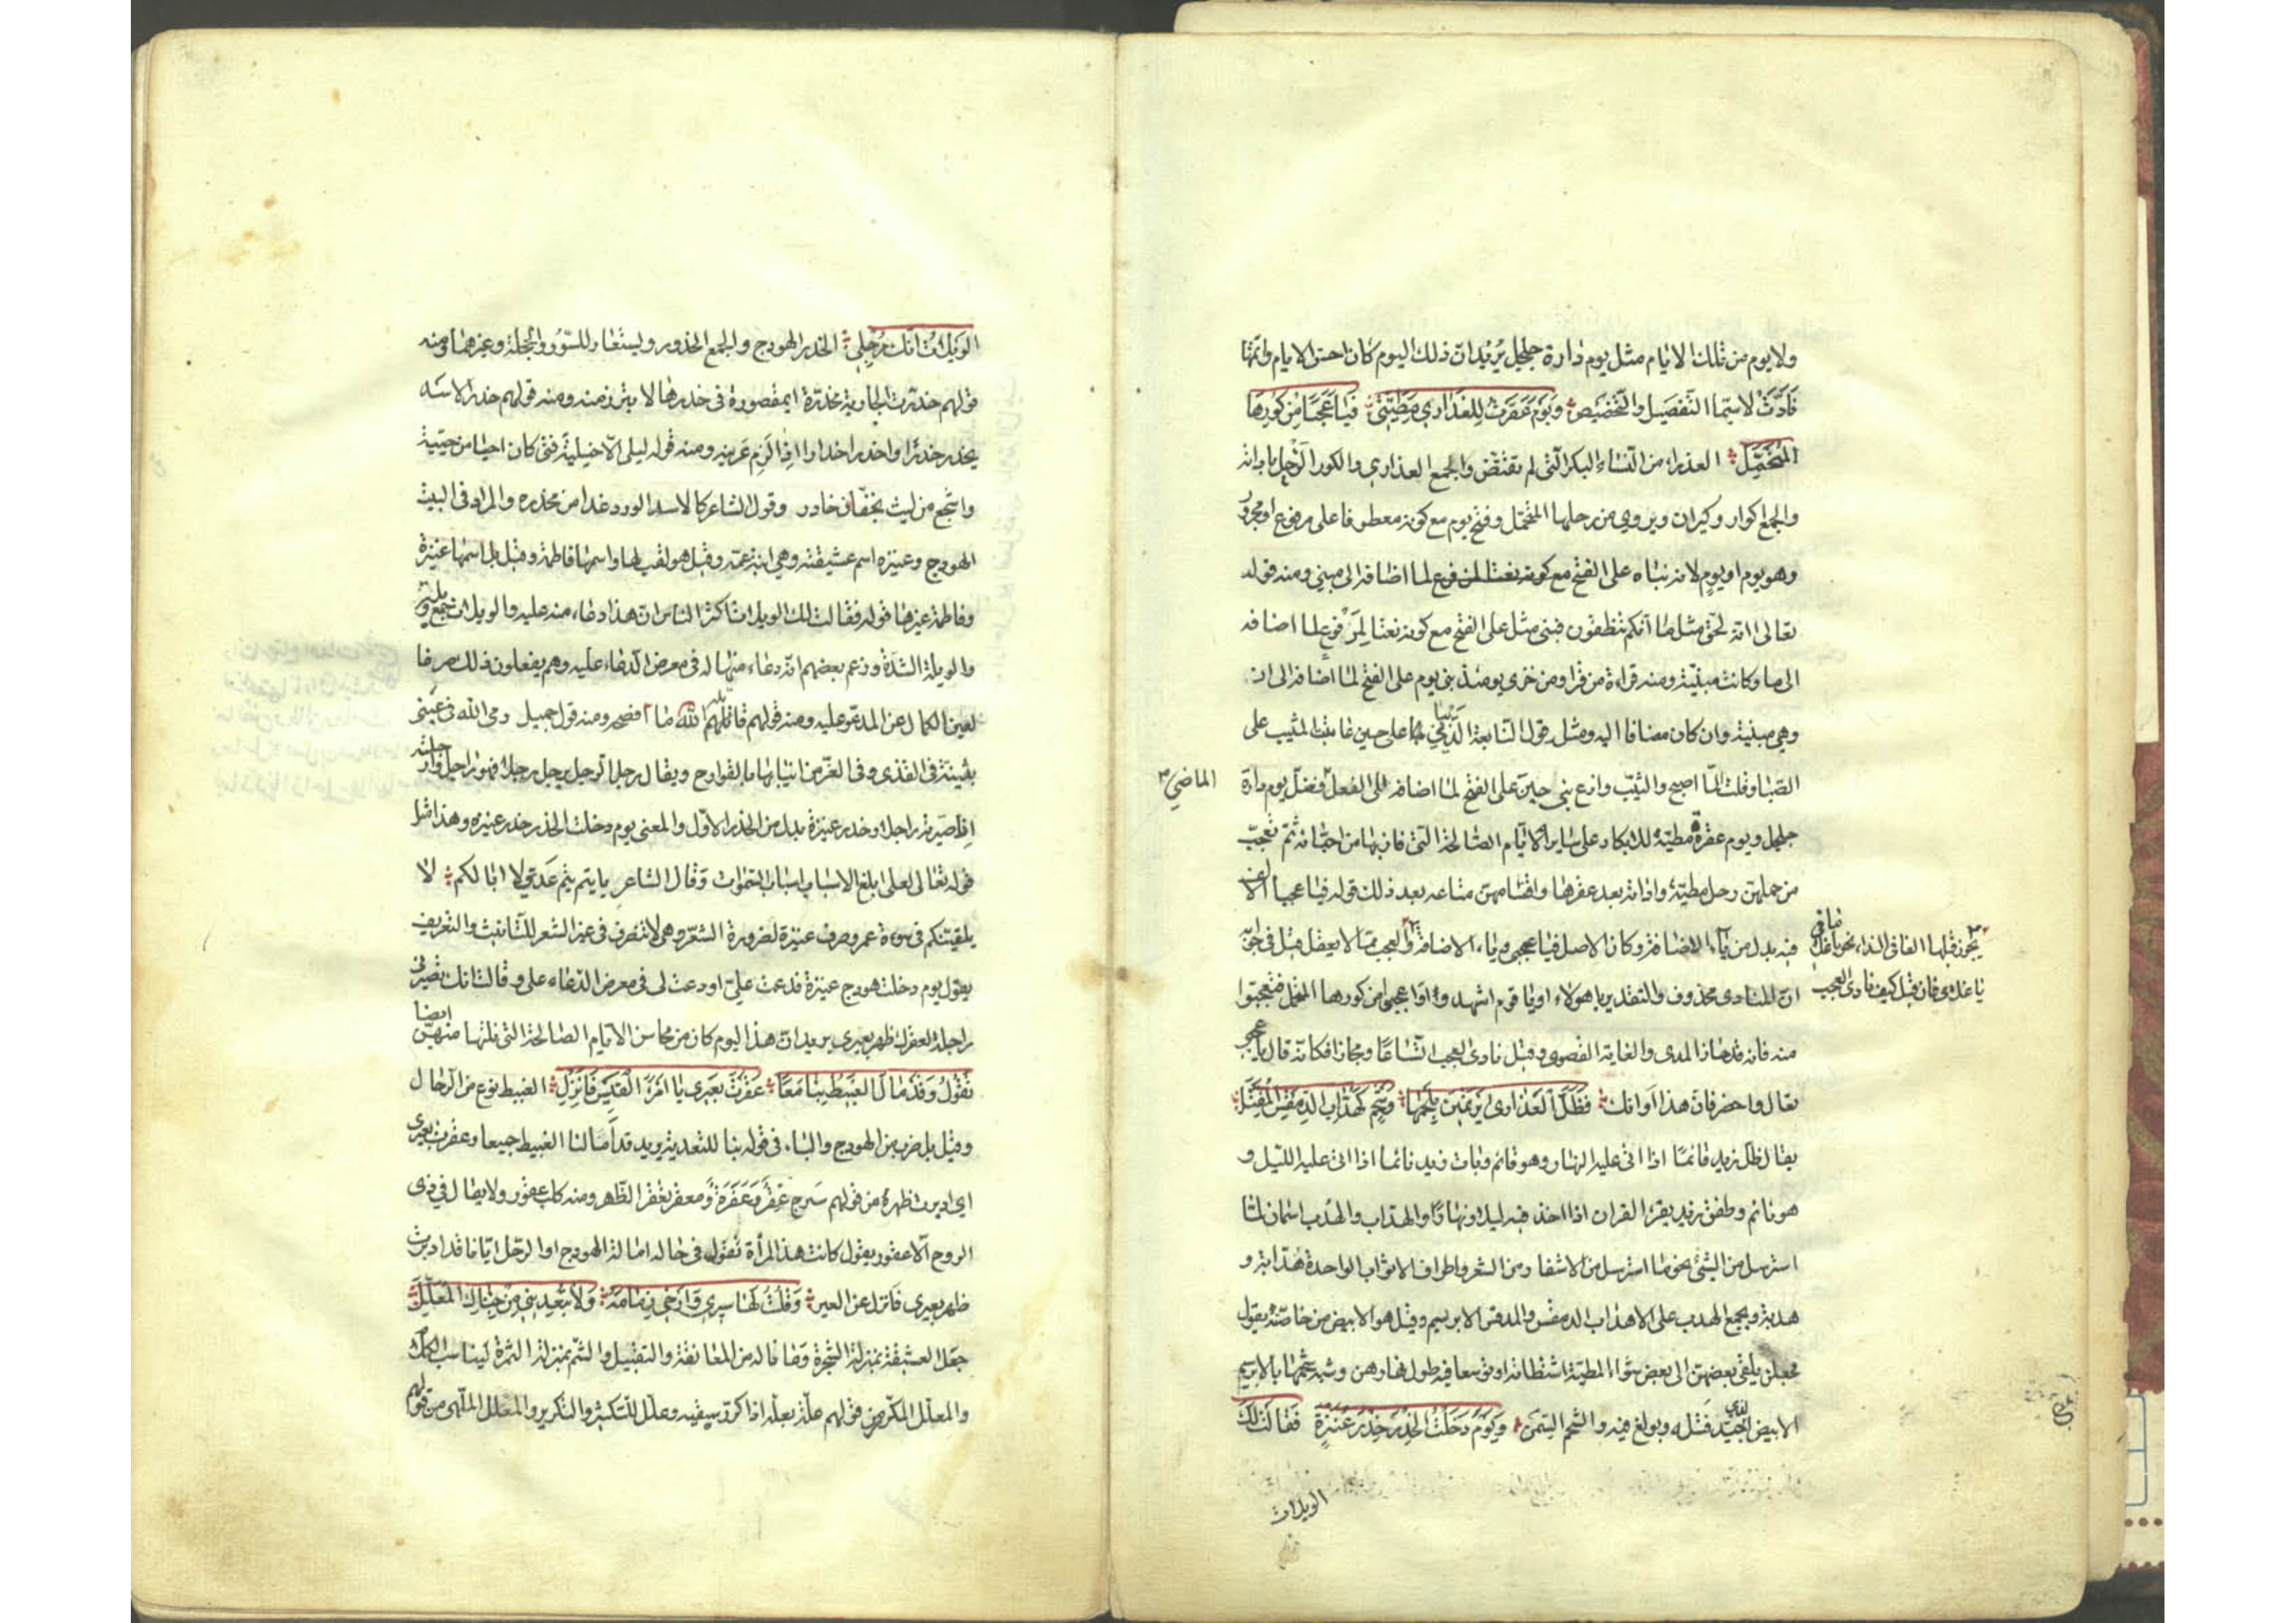 ولا يوم من تلك الايام مثل يوم دارة جلجل يريد ان ذلك اليوم كان احسن الايام واتمها
فادّت لاسيّما التفصيل والتخصيص ويوم عقرت للعذارى مطيّتي فيا عجبًا من كورها
المتحمّل العذراء من النساء البكر التي لم تفتض والجمع العذارى والكور الرّحل باداته
والجمع اكوار وكيران ويروى من رحلها المتحمّل وفتح يوم مع كونه معطوفا على مرفوع او مجرور
وهو يوم او يوم لانه بناه على الفتح مع كونه نعتا لمرفوع لما اضافه الى مبني ومنه قوله
تعالى انه لحق مثل ما انكم تنطقون فبنى مثل على الفتح مع كونه نعتا لمرفوع لما اضافه
الى ما وكانت مبنيّة ومنه قراءة من قرا ومن خزى يومئذ بنى يوم على الفتح لما اضافه الى اذ
وهي مبنية وان كان مضافا اليه ومثله قول النابغة الذبياني على حين عاتبت المشيب على
الصبا وقلت المّا اصح والشيب وازع بنى حين على الفتح لما اضافه الى الفعل فضل يوم دارة
الماضي
جلجل ويوم عقره مطيّته للابكار على ساير الايام الصالحة التي فاز بها من احبّائه ثم تعجّب
من حملهن رحل مطيّته واداته بعد عقرها واقتسامهن متاعه بعد ذلك قوله فيا عجبا الالف
فيه بدل من ياء الاضافة وكان الاصل فيا عجبي وياء الاضافة والعجب مما لا يعقل قيل في جوابه
يجوز قبلها الفا فى النداء نحو يا غلاما فى
يا غلامي فان قيل كيف نادى العجب
ان المنادى محذوف والتقدير يا هولاء او يا قوم اشهدوا عجبي من كورها المتحمل فتعجبوا
منه فانه قد جاز المدى والغاية القصوى وقيل نادى العجب اتساعًا ومجازا فكانه قال يا عجبي
تعال واحضر فان هذا اوانك فظلّ العذارى يرتمين بلحمها وشحم كهدّاب الدمقس المفتّل
يقال ظلّ زيد قائمًا اذا اتى عليه النهار وهو قائم وبات زيد نائما اذا اتى عليه الليل و
هو نائم وطفق زيد يقرء القران اذا اخذ فيه ليلا ونهارًا والهدّاب والهدب اسمان لما
استرسل من الشيء نحو ما استرسل من الاشفار ومن الشعر واطراف الاثواب الواحدة هدابة و
هدبة ويجمع الهدب على الاهداب الدمقس والمدقس الابريسم وقيل هو الابيض منه خاصّة يقول
فجعلن يلقى بعضهن الى بعض شواء المطيّة استطابة او توسعا فيه طول نهارهن وشبه شحمها بالابريسم
الابيض الجيّد الذي فتله وبولغ فيه والشحم السمن ويوم دخلت الخدر خدر عنيزة فقالت لك
الويلات
الويلات انك مرجلي الخدر الهودج والجمع الخدور ويستعار للستور والحجلة وغيرهما ومنه
قولهم خدّرت الجارية مخدّرة اى مقصورة فى خدرها لا تبرز منه ومنه قولهم خدر الاسد
يخدر خدرًا واخدر اخدارا اذا لزم عرينه ومنه قول ليلى الاخيلية فتى كان احيا من حييّة
واشجع من ليث بخفّان خادر وقول الشاعر كالاسد الورد غدا من مخدره والمراد فى البيت
الهودج وعنيزه اسم عشيقته وهي ابنة عمه وقيل هو لقب لها واسمها فاطمة وقيل بل اسمها عنيزة
وفاطمة غيرها قوله فقالت لك الويلات اكثر الناس ان هذا دعاء منه عليه والويلات جمع ويلة
والويلة الشدّة وزعم بعضهم انه دعاء منها له فى معرض الدعاء عليه وهم يفعلون ذلك صرفا
لعين الكمال عن المدعو عليه ومنه قولهم قاتلهم الله ما افصحه ومنه قول جميل رمى الله فى عينى
بثينة فى القذى وفى الغر من انيابها بالقوادح ويقال رجل الرجل يرجل رجلا فهو راجل وارجلته
اذا صيرته راجلا وخدر عنيزة بدل من الخدر الاول والمعنى يوم دخلت الخدر خدر عنيزه وهذا مثل
قوله تعالى لعلى ابلغ الاسباب اسباب السموات وقال الشاعر يا تيم تيم عدىّ لا ابا لكم لا
يلقيّنكم فى سوءة عمر وصرف عنيزة لضرورة الشعر وهى لا تنصرف فى غير الشعر للتانيث والتعريف
يقول يوم دخلت هودج عنيزة فدعت عليّ او دعت لى فى معرض الدعاء على وقالت انك تصيّرنى
راجلة لعقرك ظهر بعيرى يريد ان هذا اليوم كان من محاسن الايام الصالحة التى نلتها منهن ايضا
تقول وقد مال الغبيط بنا معًا عقرت بعيرى يا امرء القيس فانزل الغبيط نوع من الرحال
وقيل بل ضرب من الهودج والباء فى قوله بنا للتعدية يريد قد امالنا الغبيط جميعا وعقرت بعيرى
اى ادبرت ظهره من قولهم سرج عقر وعقرة ومعقر يعقر الظهر ومنه كلب عقور ولا يقال فى ذى
الروح الا عقور يقول كانت هذه المرأة تقول فى حالة امالة الهودج او الرحل ايّانا قد ادبرت
ظهر بعيرى فانزل عن البعير وقلت لها سيري وأرخي زمامه ولا تبعديني من جناك المعلّل
جعل العشيقة بمنزلة الشجرة وما ناله من المعانقة والتقبيل والشم بمنزلة الثمرة ليناسب الكلام
والمعلّل المكرّر من قولهم علّه يعلّه اذا كرّر سقيه وعلل للتكثير والتكرير والمعلل الملهى من قولهم